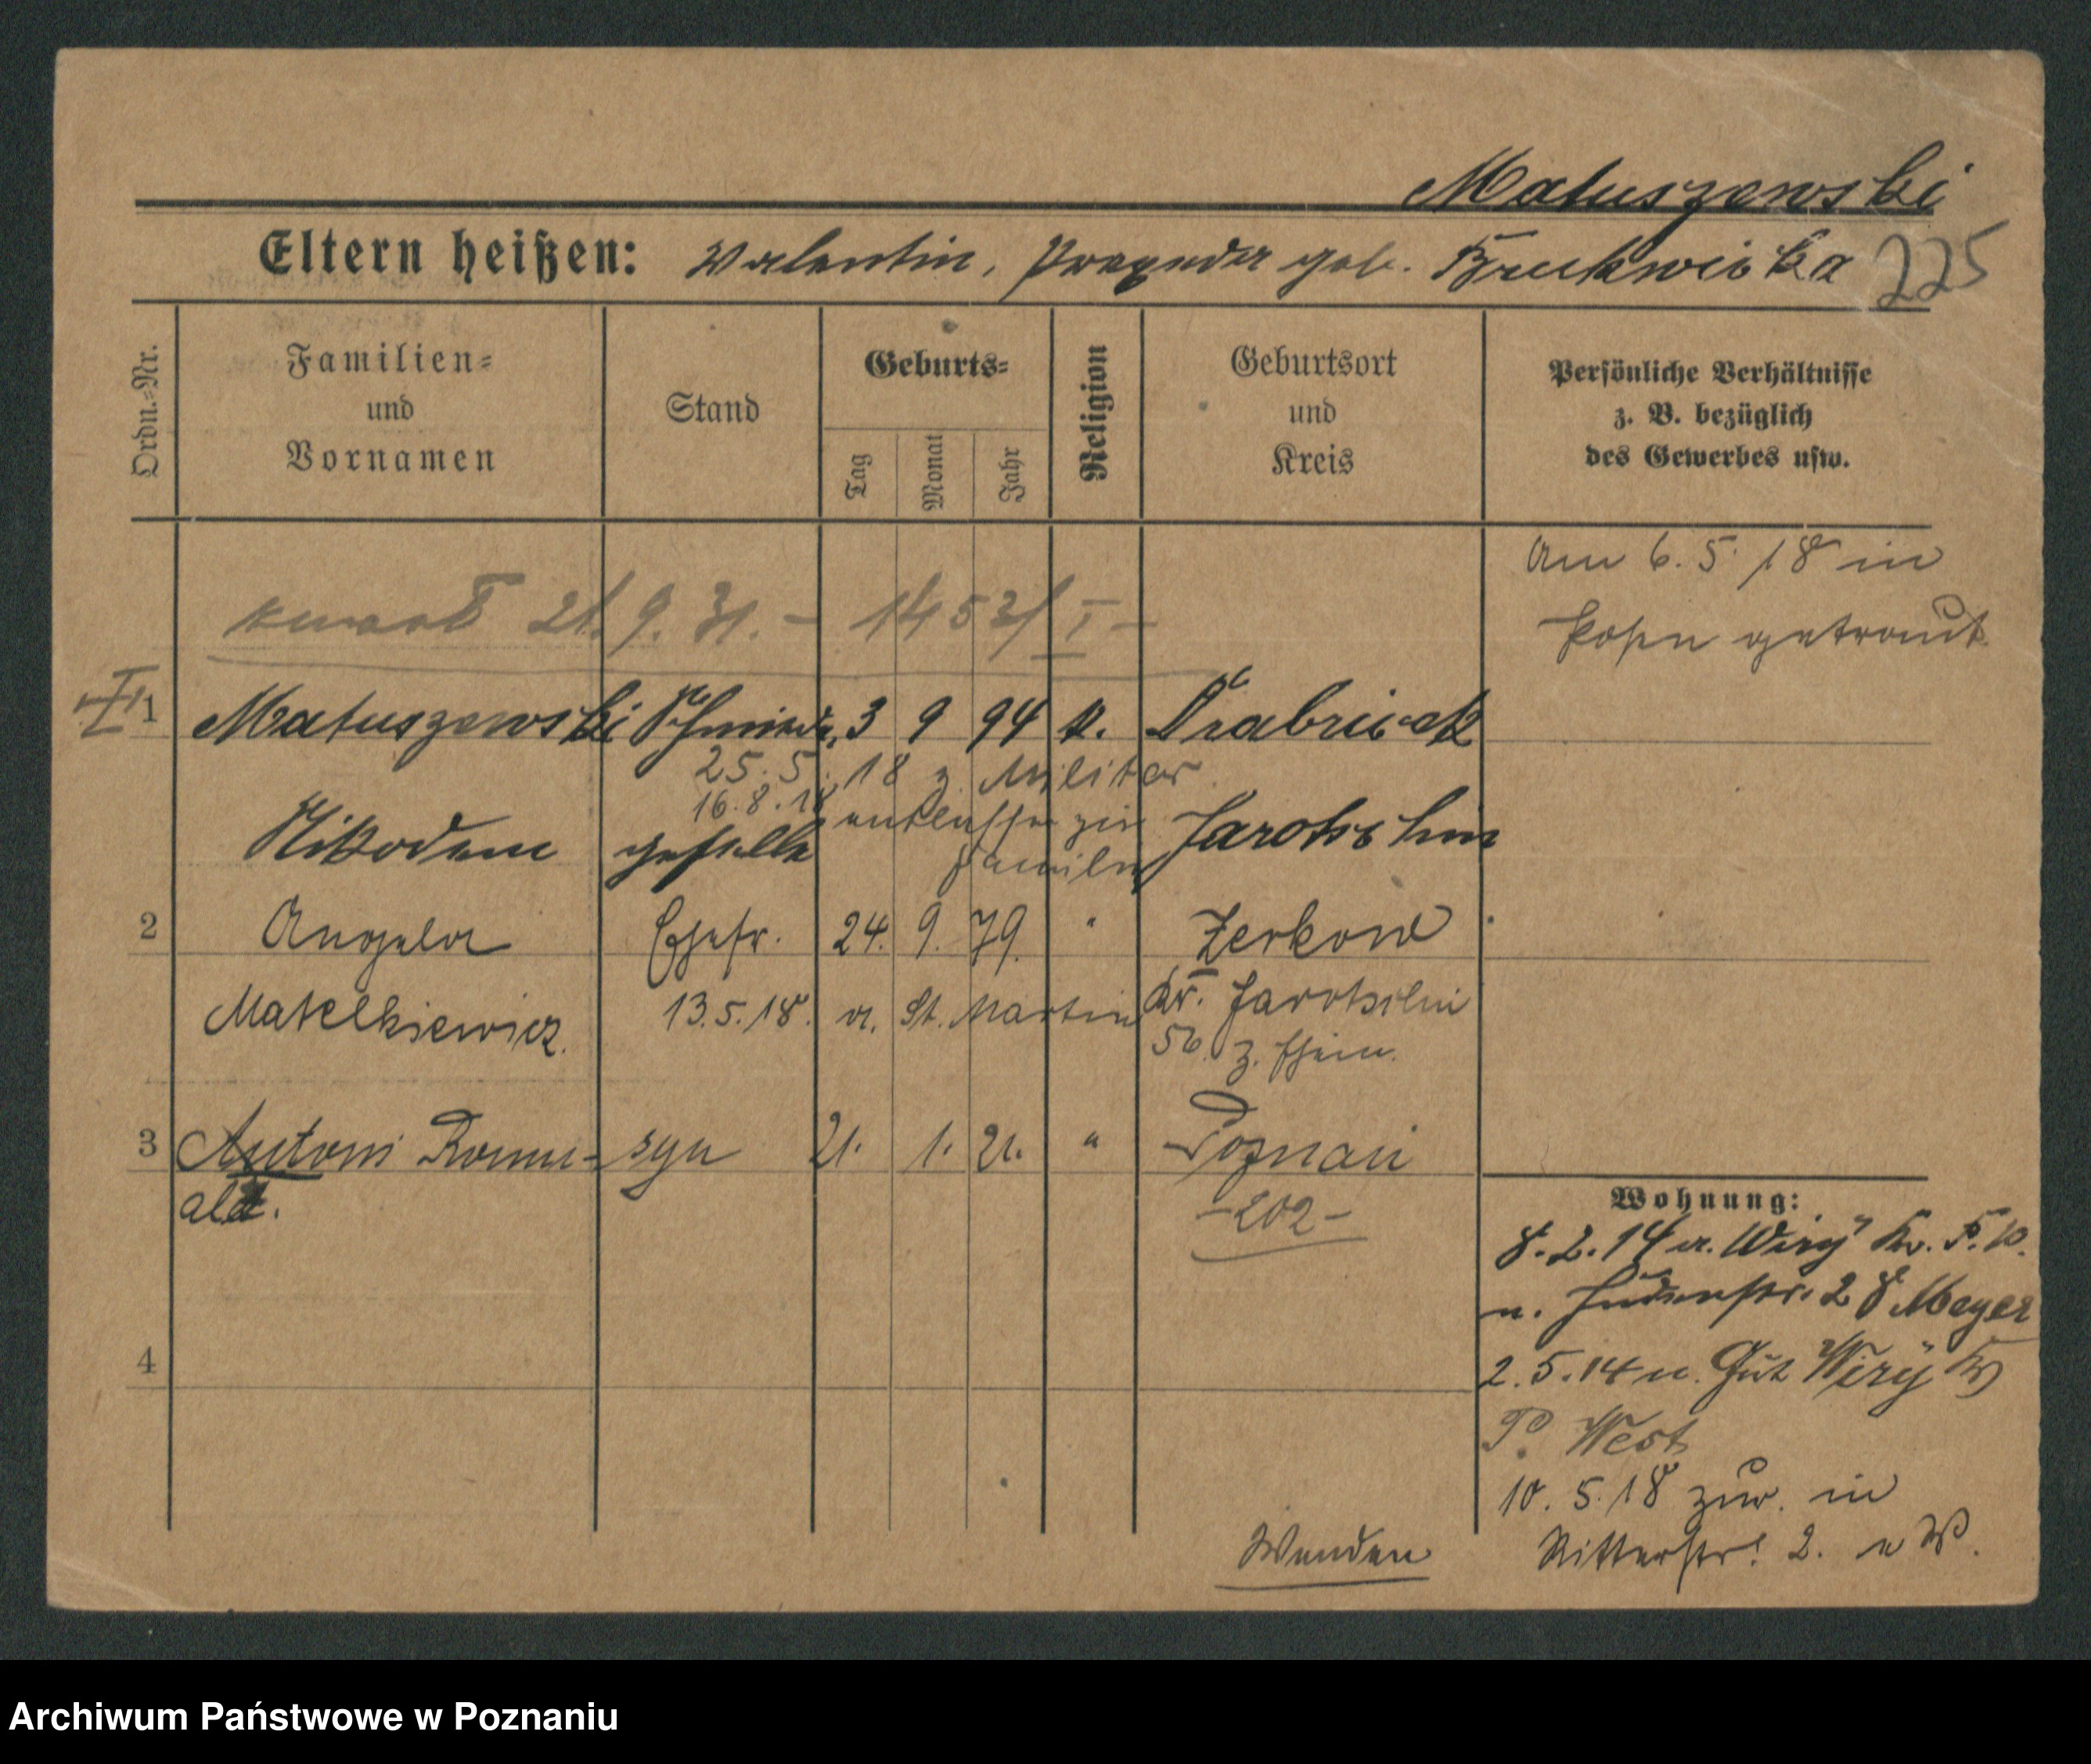 Matuszewski
Eltern heißen: Valentin, Praxeda geb. Bruckwicka 225
Ordn.-Nr.
Familien-
und
Vornamen
Stand
Geburts-
Tag
Monat
Jahr
Religion
Geburtsort
und
Kreis
Persönliche Verhältnisse
z. B. bezüglich
des Gewerbes usw.
Am 6. 5. 18 in
Posen getraut
21. 9. 31. - 14531 I -
1 Matuszewski Schmiede, 3 9 94 k.
25. 5. 18 z. Militär
16. 8. 18 entlassen zur
Nikodem geselle Jarotschin
Familie
2 Angela Ehefr. 24. 9. 79. " Zerkow
Matelkiewicz. 13. 5. 18. v. St. Martin Kr. Jarotschin
56. z.
3 Antoni Romu- syn 21. 1. 21. " Poznań
ald.
-202-
Wohnung:
8. 2. 14 v. Wiry Kr. P. W.
n. Judenstr. 28 Meyer
2. 5. 14 n. Gut Wiry Kr
P. West
4
10. 5. 18 zur. in
Ritterstr. 2.
Wenden
Archiwum Państwowe w Poznaniu